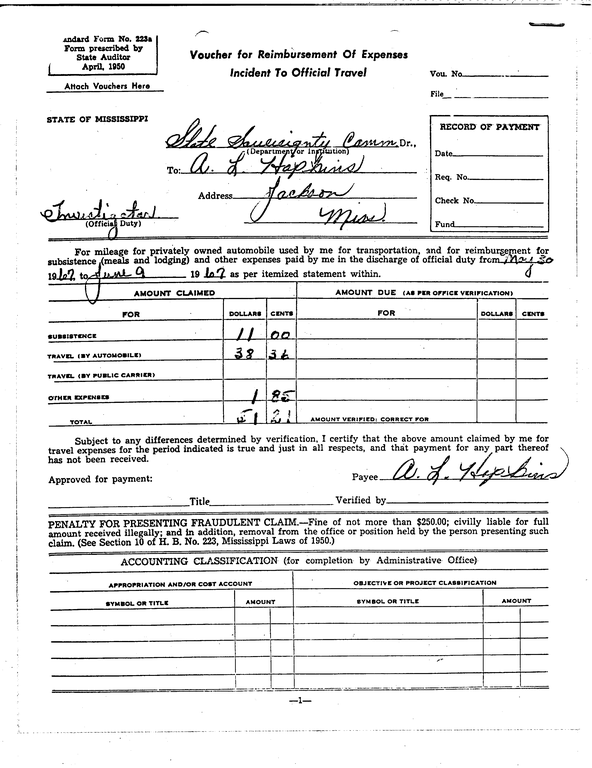 andard Form No. 223a
Form prescribed by
State Auditor
April, 1950
Attach Vouchers Here
Voucher for Reimbursement Of Expenses
Incident To Official Travel
Vou. No.
File
STATE OF MISSISSIPPI
State Sovereignty Comm Dr.,
(Department or Institution)
To: A. L. Hopkins
Address Jackson
Miss.
Investigator
(Official Duty)
RECORD OF PAYMENT
Date
Req. No.
Check No.
Fund
For mileage for privately owned automobile used by me for transportation, and for reimbursement for
subsistence (meals and lodging) and other expenses paid by me in the discharge of official duty from May 30
1967 to June 9 1967 as per itemized statement within.
AMOUNT CLAIMED AMOUNT DUE (AS PER OFFICE VERIFICATION)
FOR DOLLARS CENTS FOR DOLLARS CENTS
SUBSISTENCE 11 00
TRAVEL (BY AUTOMOBILE) 38 36
TRAVEL (BY PUBLIC CARRIER)
OTHER EXPENSES 1 85
TOTAL 51 21 AMOUNT VERIFIED: CORRECT FOR
Subject to any differences determined by verification, I certify that the above amount claimed by me for
travel expenses for the period indicated is true and just in all respects, and that payment for any part thereof
has not been received.
Approved for payment: Payee A. L. Hopkins
Title Verified by
PENALTY FOR PRESENTING FRAUDULENT CLAIM.—Fine of not more than $250.00; civilly liable for full
amount received illegally; and in addition, removal from the office or position held by the person presenting such
claim. (See Section 10 of H. B. No. 223, Mississippi Laws of 1950.)
ACCOUNTING CLASSIFICATION (for completion by Administrative Office)
APPROPRIATION AND/OR COST ACCOUNT OBJECTIVE OR PROJECT CLASSIFICATION
SYMBOL OR TITLE AMOUNT SYMBOL OR TITLE AMOUNT
—1—